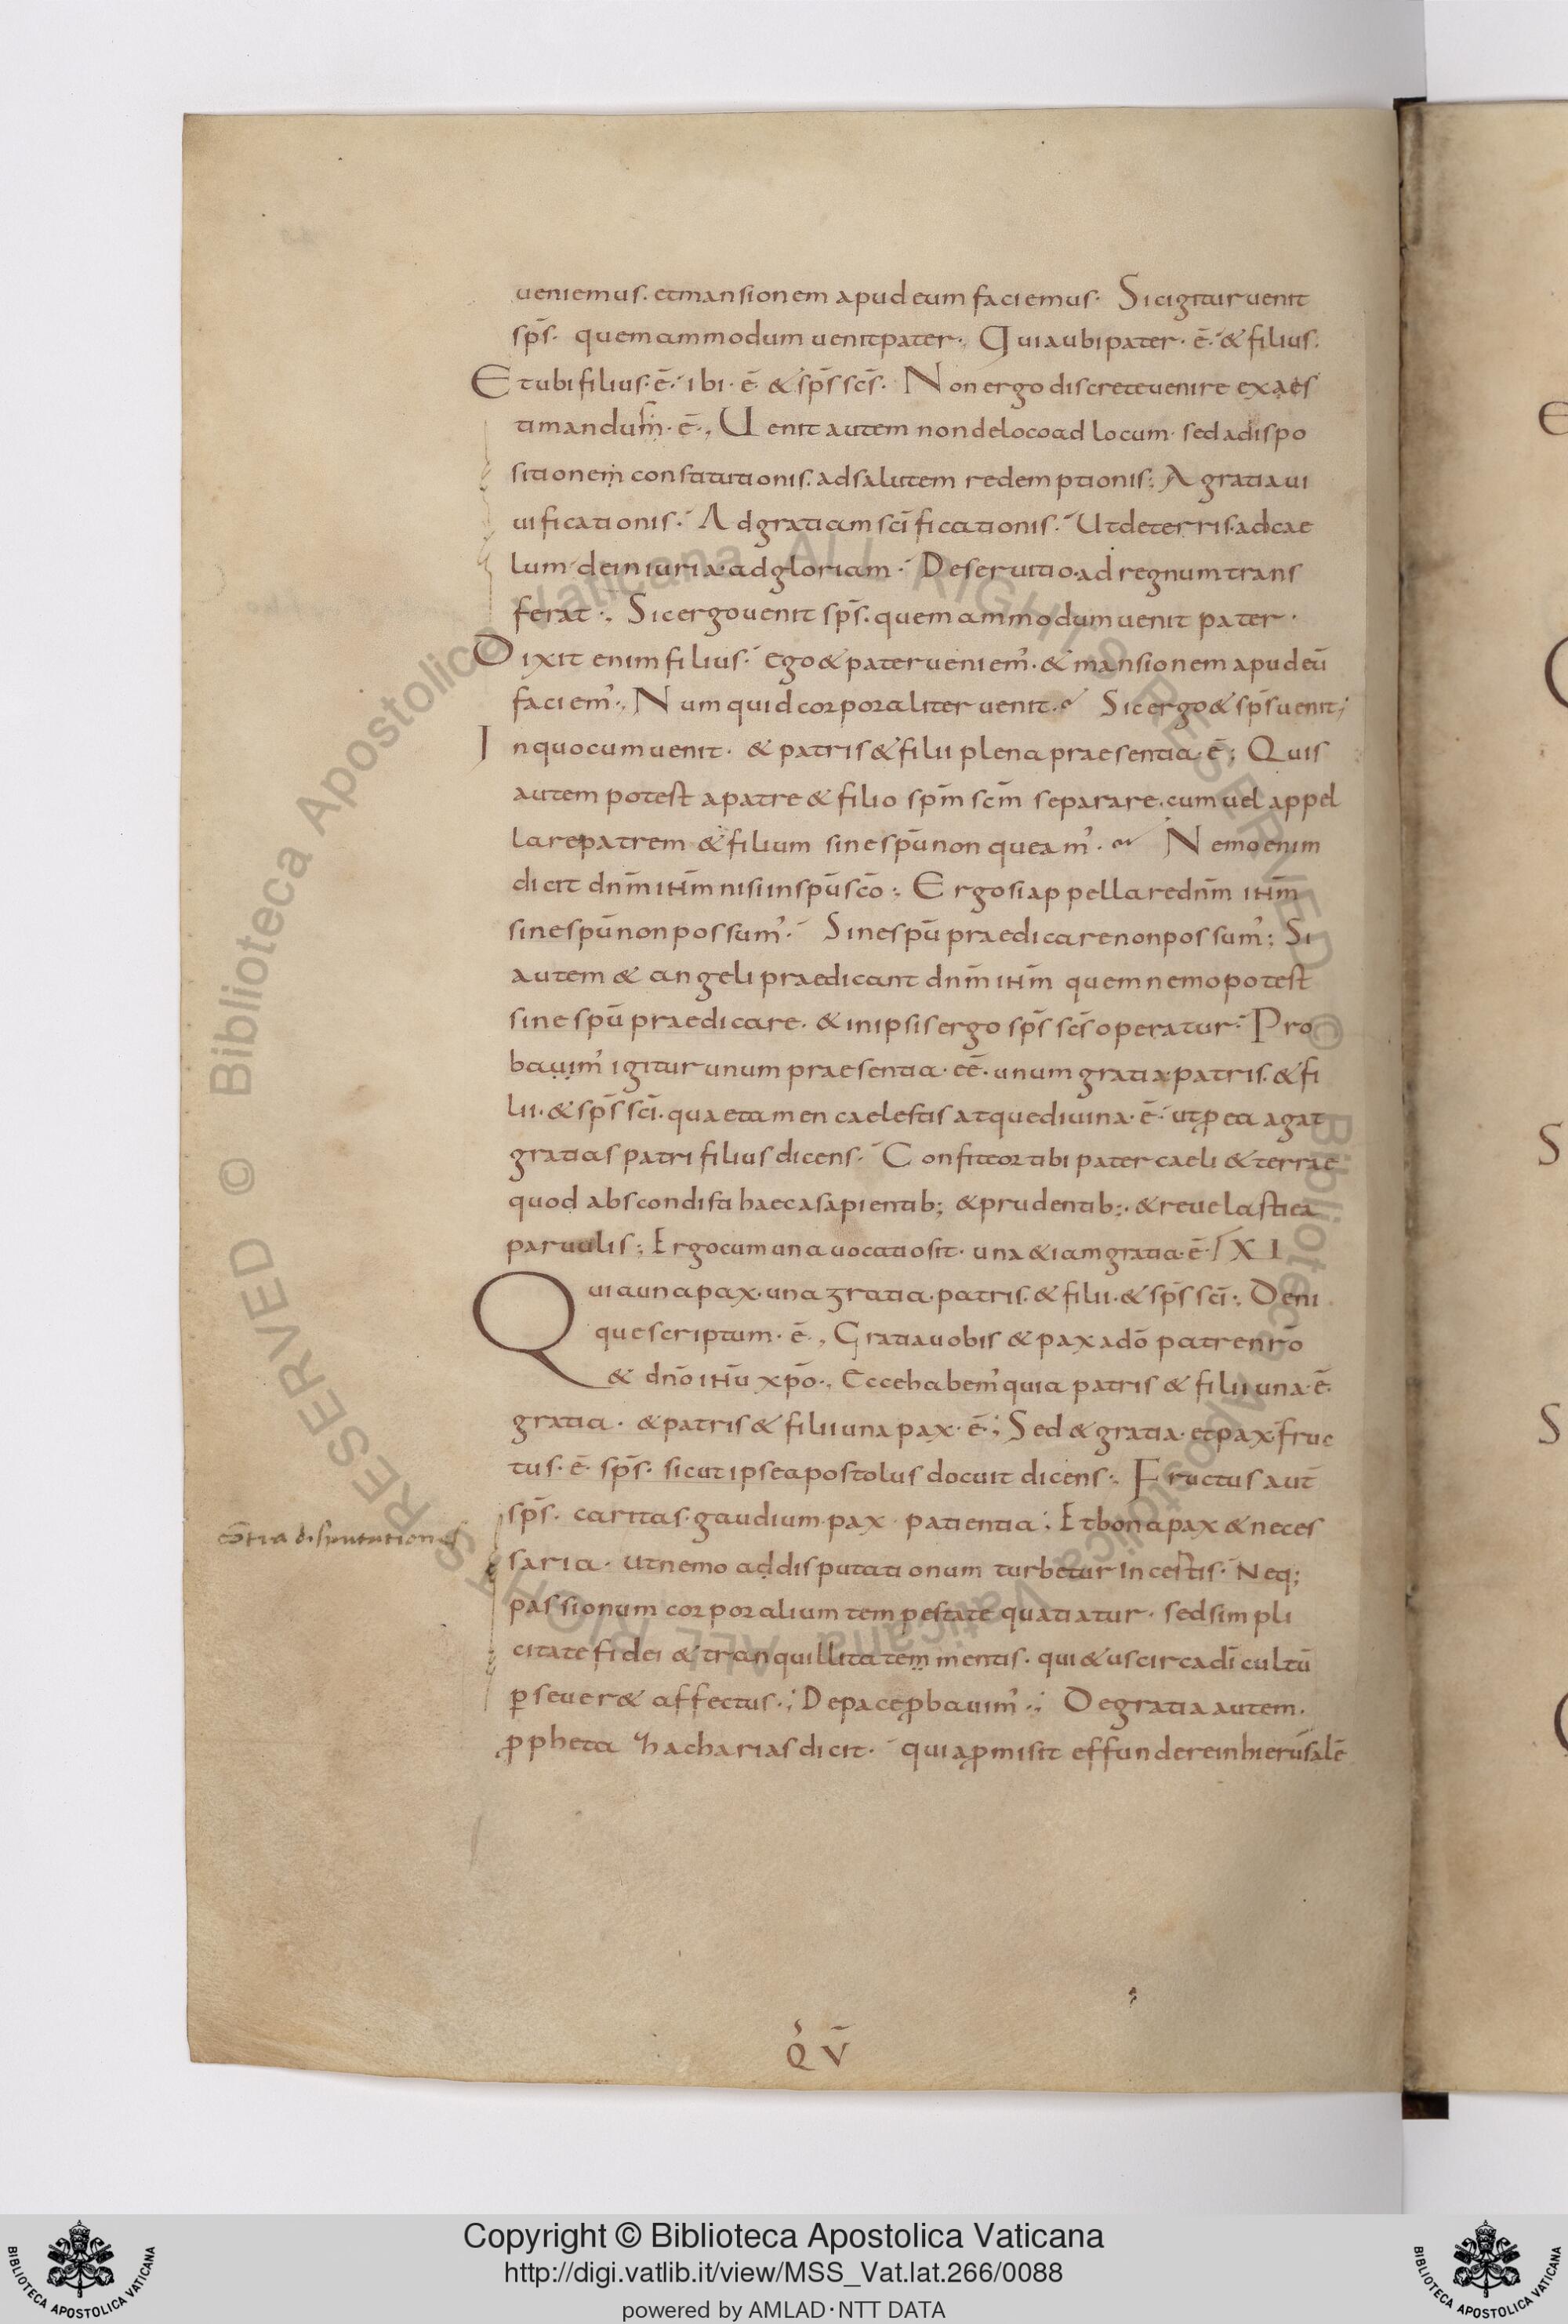 ueniemus. et mansionem apud eum faciemus· Sic igitur uenit
sp̄s· quemammodum uenit pater·, Quia ubi pater· ē· & filius.
Et ubi filius· ē· ibi· ē & sp̄s sc̄s· Non ergo discrete uenire exaes
timandum· ē·, Uenit autem non de loco ad locum· sed a dispo
sitionem constitutionis. ad salutem redemptionis; A gratia ui
uificationis· Ad gratiam sc̄ificationis· Ut de terris· ad cae
lum de iniuria· ad gloriam· De seruitio· ad regnum trans
ferat·, Sic ergo uenit sp̄s. quemammodum uenit pater·
Dixit enim filius· ego & pater ueniem᾽· & mansionem apud eū
faciem᾽·, Numquid corporaliter uenit· Sic ergo & sp̄s uenit;
In quo cum uenit· & patris & filii plena praesentia· ē; Quis
autem potest a patre & filio sp̄m sc̄m separare. cum uel appel
lare patrem & filium sine sp̄u non queam᾽· Nemo enim
dicit dn̄m ih̄m nisi in sp̄u sc̄o; Ergo si appellare dn̄m ih̄m
sine sp̄u non possum᾽· Sine sp̄u praedicare non possum᾽; Si
autem & angeli praedicant dn̄m ih̄m quem nemo potest
sine sp̄u praedicare· & in ipsis ergo sp̄s sc̄s operatur· Pro
bauim᾽ igitur unum praesentia· eē· unum gratia· patris· & fi
lii· & sp̄s sc̄i· quae tamen caelestis atque diuina· ē· ut ꝑ ea agat
gratias patri filius dicens· Confiteor tibi pater caeli & terrae
quod abscondisti haec a sapientib; & prudentib;· & reuelasti ea
paruulis; Ergo cum una uocatio sit· una & iam gratia· ē· XI
Quia una pax· una gratia· patris· & filii· & sp̄s sc̄i·, Deni
que scriptum· ē·, Gratia uobis & pax a dō patre nr̄o
& dn̄o ih̄u xp̄o·, Ecce habem᾽ quia patris & filii una· ē·
gratia· & patris & filii una pax· ē·; Sed & gratia· et pax· fruc
tus· ē· sp̄s· sicut ipse apostolus docuit dicens·, Fructus aut̄
sp̄s· caritas· gaudium· pax· patientia; Et bona pax & neces
saria· ut nemo ad disputationum turbetur incestis· Neq;
passionum corporalium tempestate quatiatur· sed simpli
citate fidei & tranquillitatem mentis· qui&us circa dī cultū
ꝑseuer& affectus·; De pace ꝓbauim᾽·; De gratia autem·
ꝓpheta zhacharias dicit· quia ꝓmisit effundere in hierusalē
cōtra disputationes
Q V
Copyright © Biblioteca Apostolica Vaticana
http://digi.vatlib.it/view/MSS_Vat.lat.266/0088
powered by AMLAD·NTT DATA
BIBLIOTECA APOSTOLICA VATICANA
BIBLIOTECA APOSTOLICA VATICANA
© Biblioteca Apostolica Vaticana ALL RIGHTS RESERVED
© Biblioteca Apostolica Vaticana ALL RIGHTS RESERVED